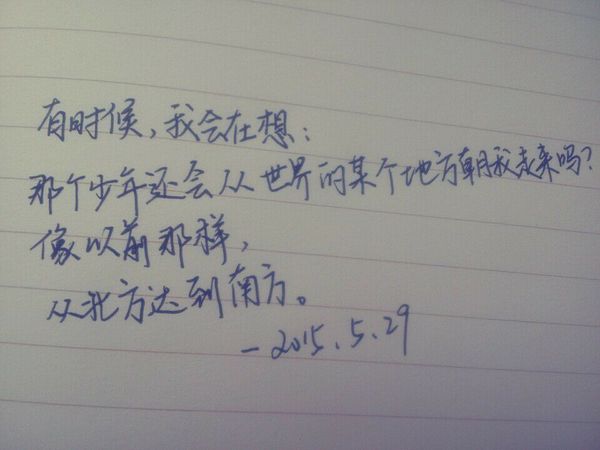 有时候,我会在想:
那个少年还会从世界的某个地方朝我走来吗?
像以前那样,
从北方达到南方。
—2015.5.29